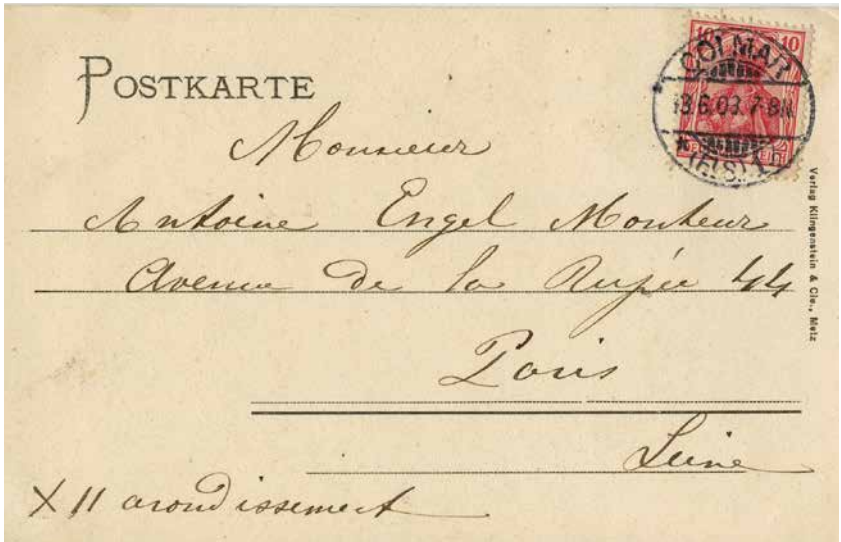 POSTKARTE
10 10
COLMAR
13.6.03. 7-8N
Monsieur
Antoine Engel Monteur
Avenue de la Rapée 44
Paris
Seine
XII arondissement
Verlag Klingenstein & Cie., Metz